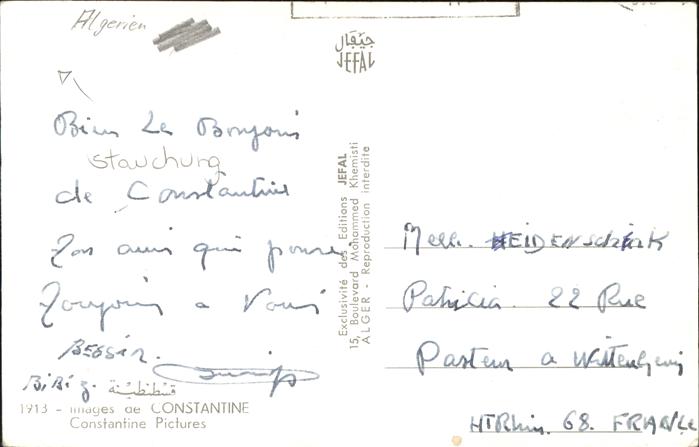 Algerien
جيفال
JEFAL
Bien Le Bonjour
stauchung
de Constantine
Ton ami qui pense
Toujours a Vous
BESSIR.
BiBi z.
قسنطينة
1913 - Images de CONSTANTINE
Constantine Pictures
Exclusivité des Editions JEFAL
15, Boulevard Mohammed Khemisti
ALGER - Reproduction interdite
Melle. HEIDENSCHINK
Patricia. 22 Rue
Pasteur a Wittenheim
HTRhin. 68. FRANCE